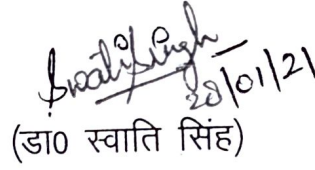 Swati Singh
28/01/21
(डा0 स्वाति सिंह)